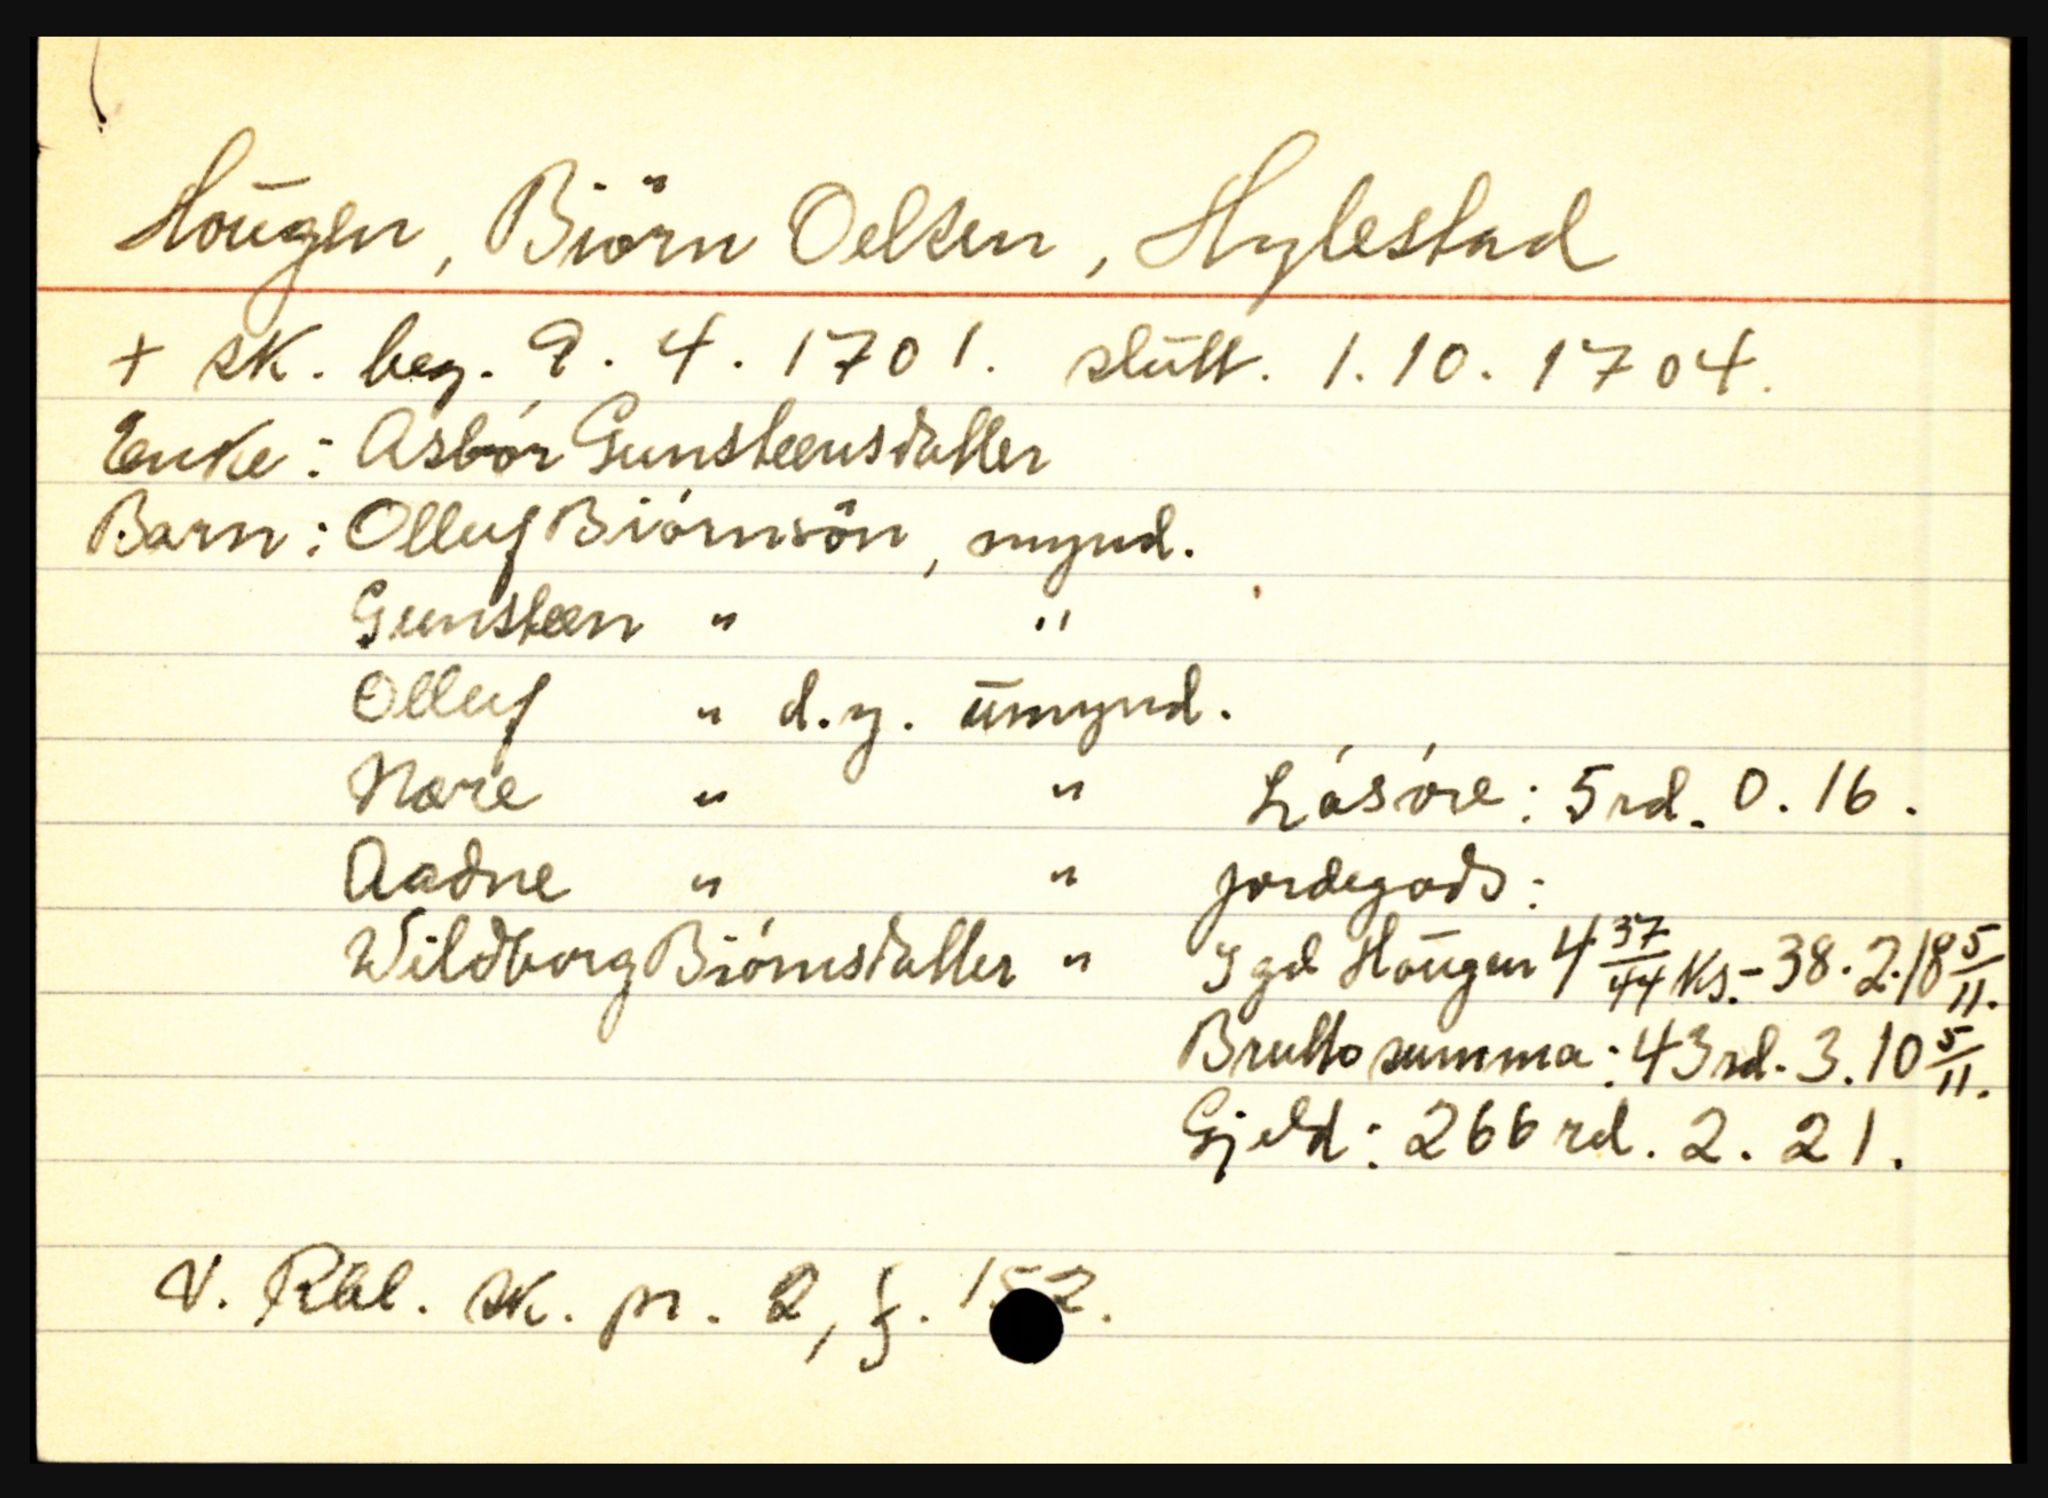 Hougen, Biörn Oelsen, Hylestad
+ sk. beg. 9. 4. 1701. slutt. 1. 10. 1704.
Enke: Asbór Gunsteensdatter
Barn: Olluf Biórnsön, mynd.
Gunsteen " "
Olluf " d.y. umynd.
Nore " " Lösöre: 5 rd. 0. 16.
Aadne " " jordegods:
Wildborg Biórnsdatter " I gd Hougen 4 37/44 Ks. - 38. 2. 18 5/11.
Brutto summa: 43 rd. 3. 10 5/11.
Gjeld: 266 rd. 2. 21.
V. Rbl. sk. pr. 2, f. 152.